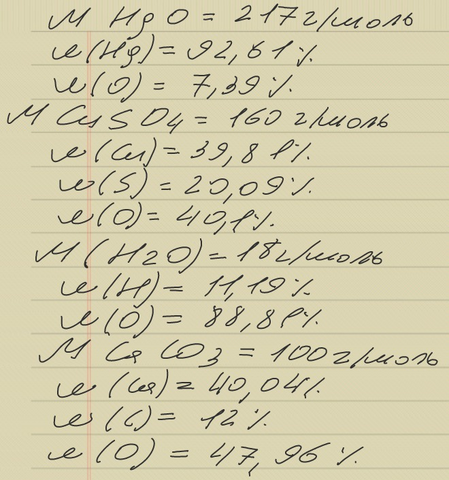 M HgO = 217 г/моль
w(Hg) = 92,61%
w(O) = 7,39%
M CuSO4 = 160 г/моль
w(Cu) = 39,81%
w(S) = 20,09%
w(O) = 40,1%
M(H2O) = 18 г/моль
w(H) = 11,19%
w(O) = 88,81%
M CaCO3 = 100 г/моль
w(Ca) = 40,04%
w(C) = 12%
w(O) = 47,96%